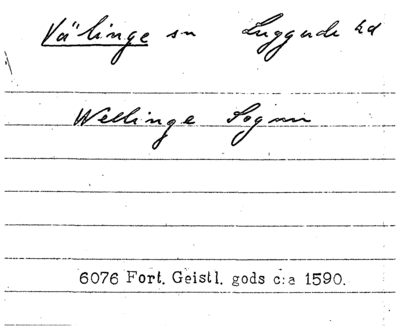 Välinge sn Luggude hd
Wellinge Sognn
6076 Fort. Geistl. gods c:a 1590.